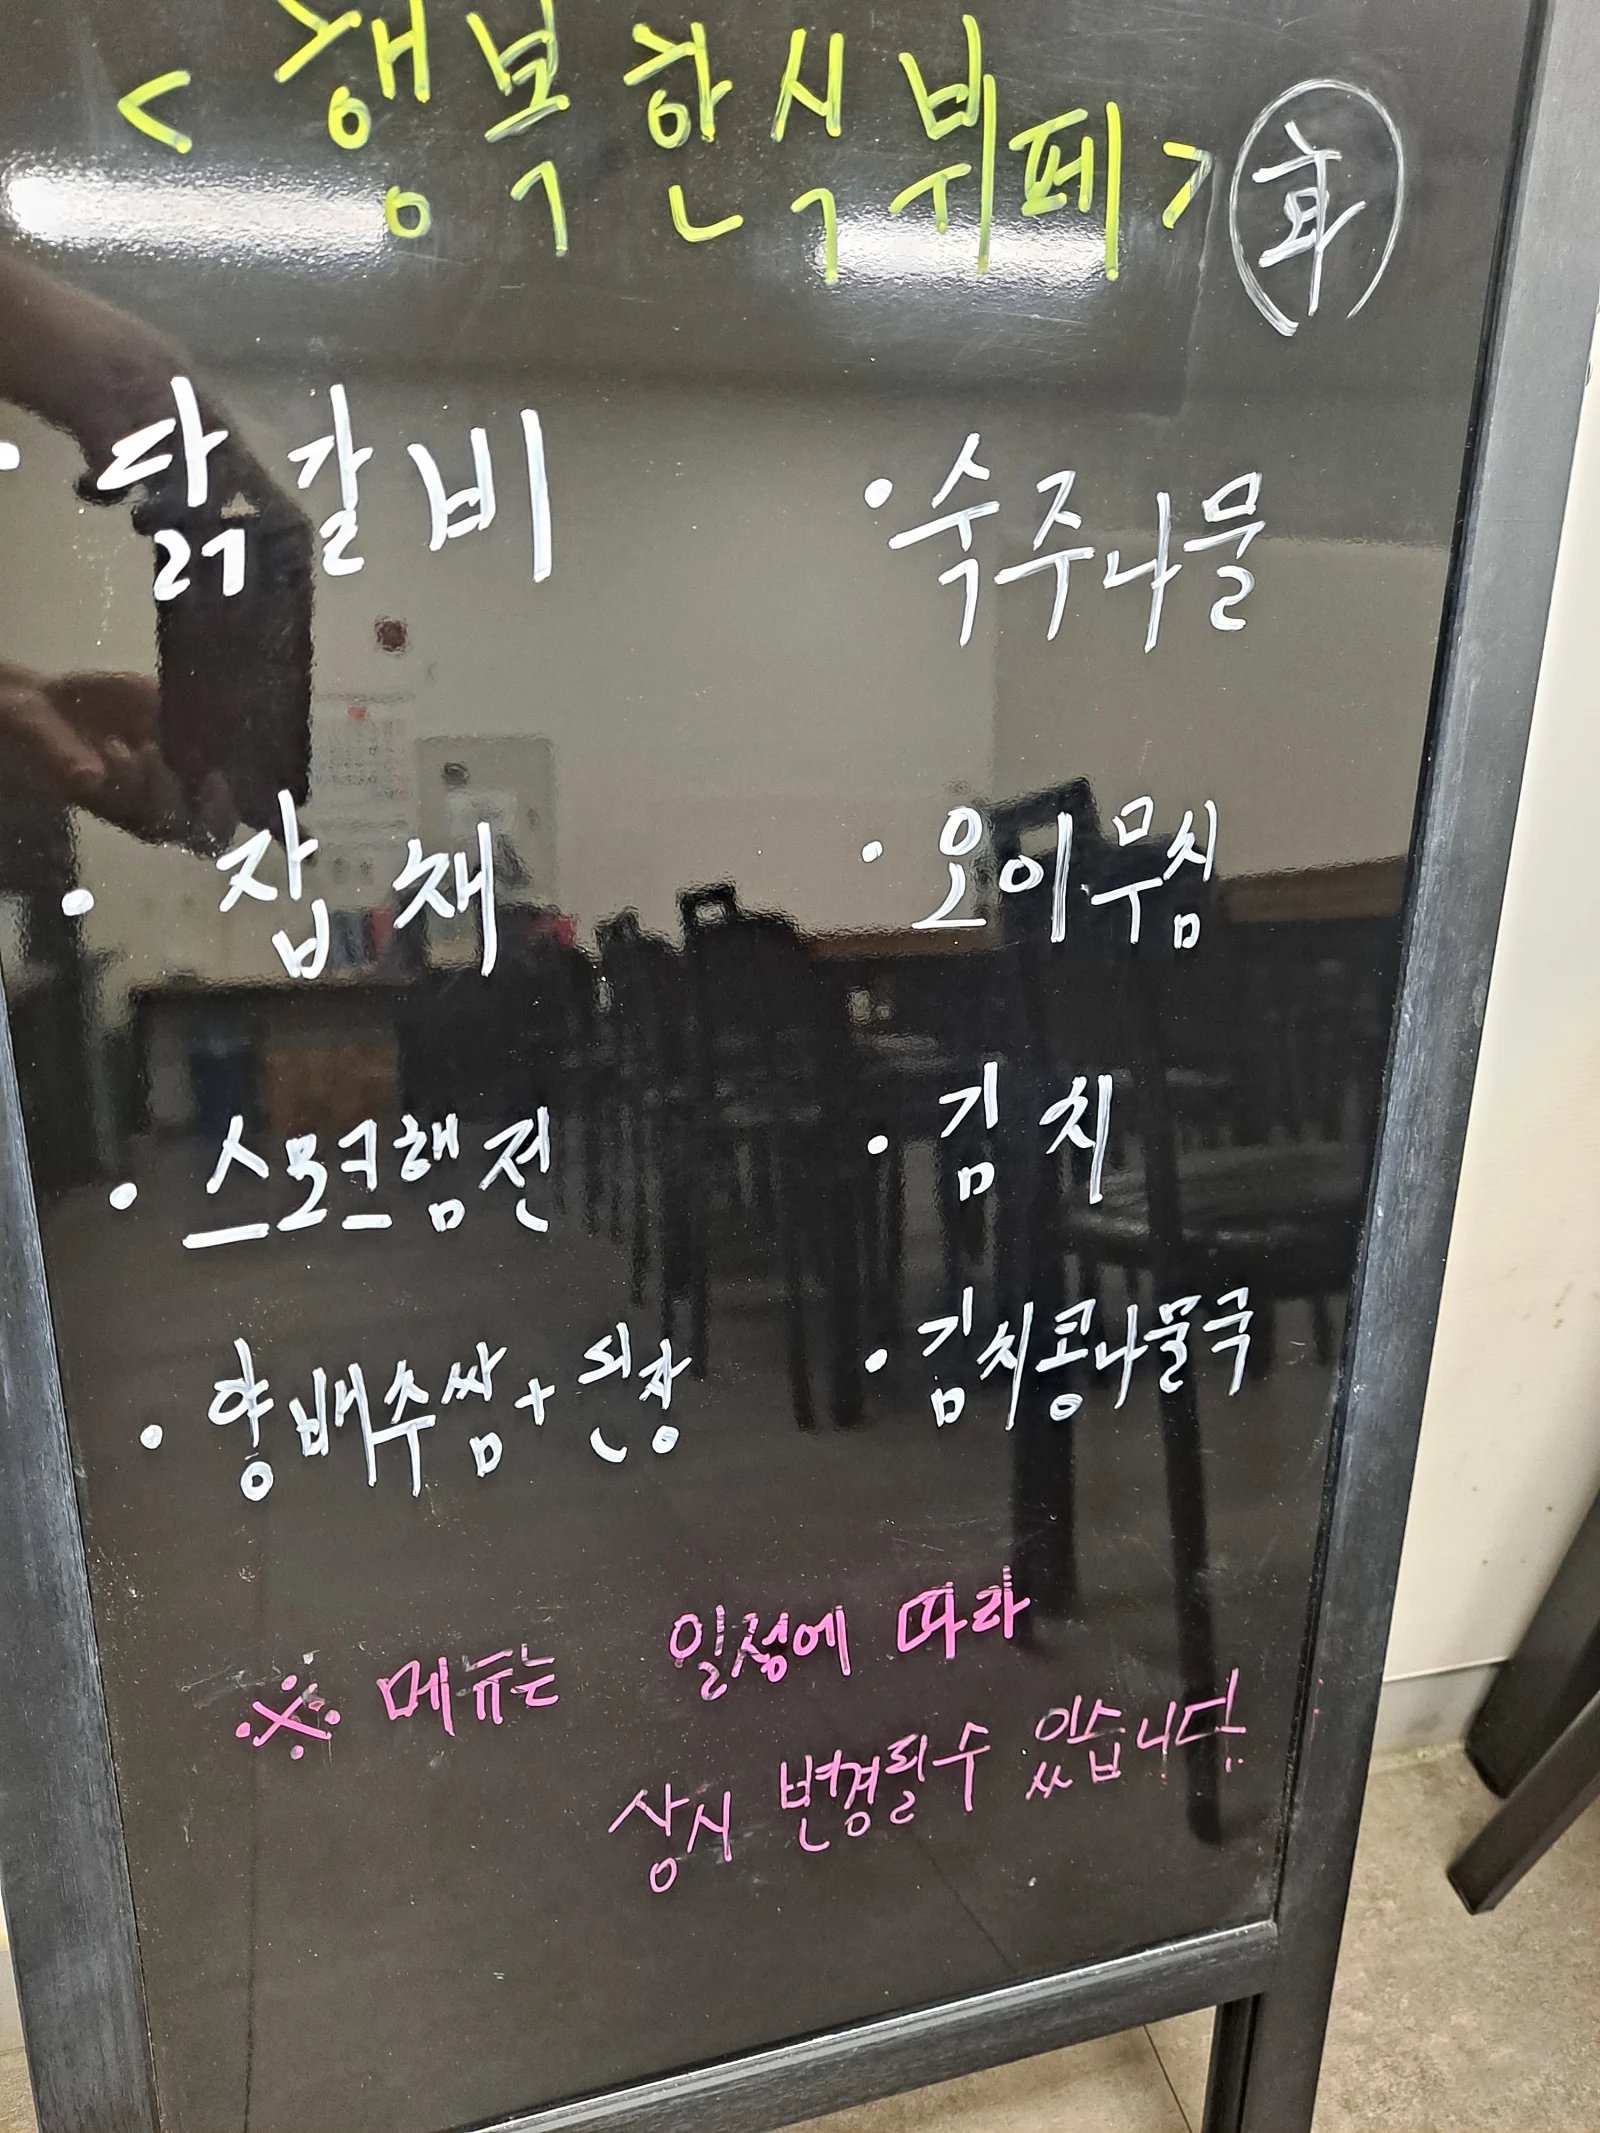 <행복한식뷔페>
• 닭갈비
• 숙주나물
• 잡채
• 오이무침
• 스모크햄전
• 김치
• 양배추쌈+된장
• 김치콩나물국
※ 메뉴는 일정에 따라
상시 변경될수 있습니다.